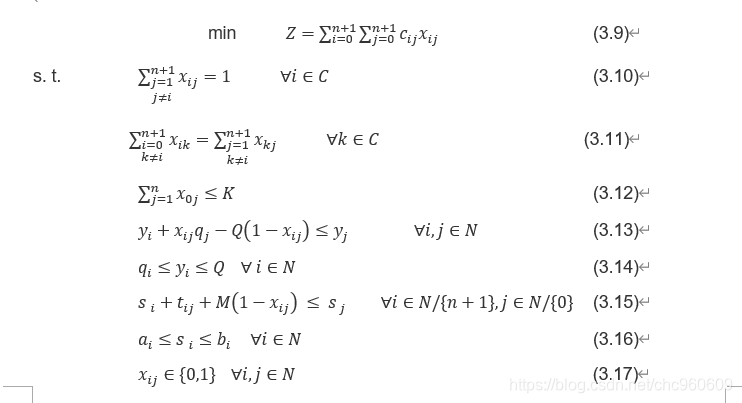 min Z = ∑_{i=0}^{n+1} ∑_{j=0}^{n+1} c_{ij}x_{ij} (3.9)↵
s. t. ∑_{j=1, j≠i}^{n+1} x_{ij} = 1 ∀i ∈ C (3.10)↵
∑_{i=0, k≠i}^{n+1} x_{ik} = ∑_{j=1, k≠i}^{n+1} x_{kj} ∀k ∈ C (3.11)↵
∑_{j=1}^{n} x_{0j} ≤ K (3.12)↵
y_i + x_{ij}q_j − Q(1 − x_{ij}) ≤ y_j ∀i, j ∈ N (3.13)↵
q_i ≤ y_i ≤ Q ∀ i ∈ N (3.14)↵
s_i + t_{ij} + M(1 − x_{ij}) ≤ s_j ∀i ∈ N/{n + 1}, j ∈ N/{0} (3.15)↵
a_i ≤ s_i ≤ b_i ∀i ∈ N (3.16)↵
x_{ij} ∈ {0,1} ∀i, j ∈ N (3.17)↵
https://blog.csdn.net/chc960609